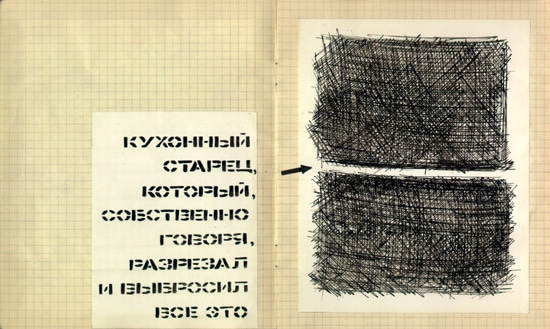 КУХОННЫЙ
СТАРЕЦ,
КОТОРЫЙ,
СОБСТВЕННО
ГОВОРЯ,
РАЗРЕЗАЛ
И ВЫБРОСИЛ
ВСЕ ЭТО